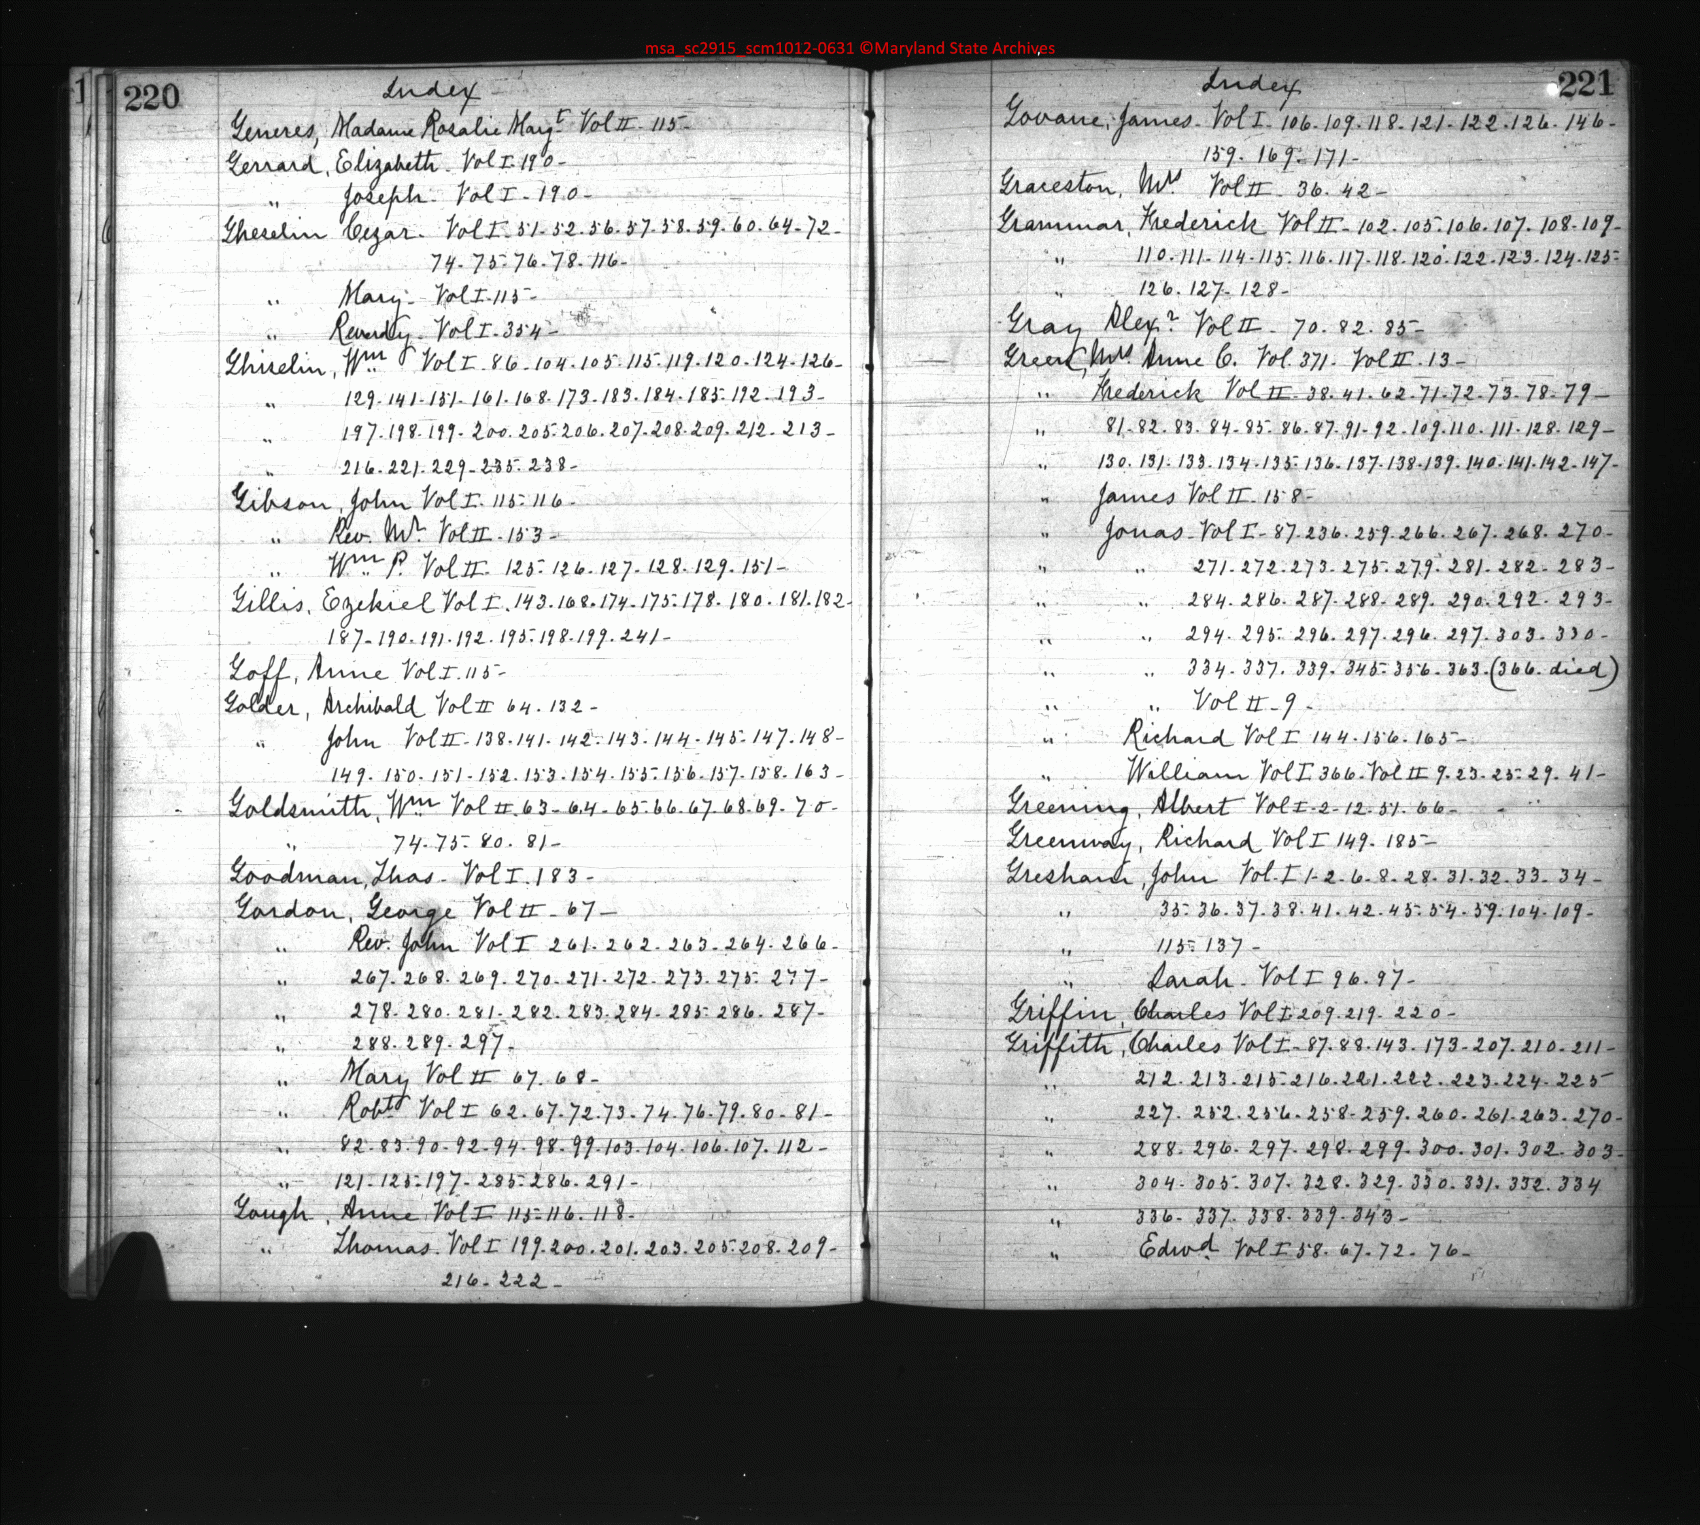 msa_sc2915_scm1012-0631 ©Maryland State Archives
220
Index
Generes, Madame Rosalie Margt Vol II - 115 -
Gerrard, Elizabeth. Vol I. 190 -
" Joseph. Vol I - 190 -
Gheselin Cezar. Vol I. 51. 52. 56. 57. 58. 59. 60. 64. 72 -
74. 75. 76. 78. 116 -
" Mary - Vol I. 115 -
" Reverdy. Vol I. 354 -
Ghiselin, Wm Vol I. 86. 104. 105. 115. 119. 120. 124. 126 -
" 129. 141. 151. 161. 168. 173. 183. 184. 185. 192. 193 -
" 197. 198. 199. 200. 205. 206. 207. 208. 209. 212. 213 -
" 216. 221. 229. 235. 238 -
Gibson, John Vol I. 115. 116 -
" Rev. Mr. Vol II. 153 -
" Wm P. Vol II. 125. 126. 127. 128. 129. 151 -
Gillis, Ezekiel Vol I. 143. 168. 174. 175. 178. 180. 181. 182 -
187. 190. 191. 192. 195. 198. 199. 241 -
Goff, Anne Vol I. 115 -
Golder, Archibald Vol II 64. 132 -
" John Vol II - 138. 141. 142. 143. 144. 145. 147. 148 -
149. 150. 151. 152. 153. 154. 155. 156. 157. 158. 163 -
Goldsmith, Wm Vol II. 63. 64. 65. 66. 67. 68. 69. 70 -
" 74. 75. 80. 81 -
Goodman, Thos. Vol I. 183 -
Gordon, George Vol II - 67 -
" Rev. John Vol I 261. 262. 263. 264. 266 -
" 267. 268. 269. 270. 271. 272. 273. 275. 277 -
" 278. 280. 281. 282. 283. 284. 285. 286. 287 -
" 288. 289. 297.
" Mary Vol II 67. 68 -
" Robt Vol I 62. 67. 72. 73. 74. 76. 79. 80. 81 -
" 82. 83. 90. 92. 94. 98. 99. 103. 104. 106. 107. 112 -
" 121. 125. 197. 285. 286. 291 -
Gough, Anne Vol I 115. 116. 118 -
" Thomas. Vol I 199. 200. 201. 203. 205. 208. 209 -
216. 222 -
221
Index
Govane, James. Vol I. 106. 109. 118. 121. 122. 126. 146 -
159. 169. 171 -
Graceston, Mrs Vol II. 36. 42 -
Grammar, Frederick Vol II - 102. 105. 106. 107. 108. 109 -
" 110. 111. 114. 115. 116. 117. 118. 120. 122. 123. 124. 125 -
" 126. 127. 128 -
Gray Alexr Vol II - 70. 82. 85 -
Green, Mrs Anne C. Vol. 371. Vol II. 13 -
" Frederick Vol II - 38. 41. 62. 71. 72. 73. 78. 79 -
" 81. 82. 83. 84. 85. 86. 87. 91. 92. 109. 110. 111. 128. 129 -
" 130. 131. 133. 134. 135. 136. 137. 138. 139. 140. 141. 142. 147 -
" James Vol II. 158 -
" Jonas Vol I - 87. 236. 259. 266. 267. 268. 270 -
" " 271. 272. 273. 275. 279. 281. 282. 283 -
" " 284. 286. 287. 288. 289. 290. 292. 293 -
" " 294. 295. 296. 297. 296. 297. 303. 330 -
" " 334. 337. 339. 345. 356. 363. (366. died)
" " Vol II - 9 -
" Richard Vol I 144. 156. 165 -
" William Vol I 366. Vol II 9. 23. 25. 29. 41 -
Greening, Albert Vol I. 2. 12. 51. 66 -
Greenway, Richard Vol I 149. 185 -
Gresham, John Vol. I 1. 2. 6. 8. 28. 31. 32. 33. 34 -
" 35. 36. 37. 38. 41. 42. 45. 54. 59. 104. 109 -
" 115. 137 -
" Sarah. Vol I 96. 97 -
Griffin, Charles Vol I. 209. 219. 220 -
Griffith, Charles Vol I - 87. 88. 143. 173. 207. 210. 211 -
" 212. 213. 215. 216. 221. 222. 223. 224. 225
" 227. 252. 256. 258. 259. 260. 261. 263. 270 -
" 288. 296. 297. 298. 299. 300. 301. 302. 303 -
" 304. 305. 307. 328. 329. 330. 331. 332. 334
" 336. 337. 338. 339. 343 -
" Edwd Vol I 58. 67. 72. 76 -